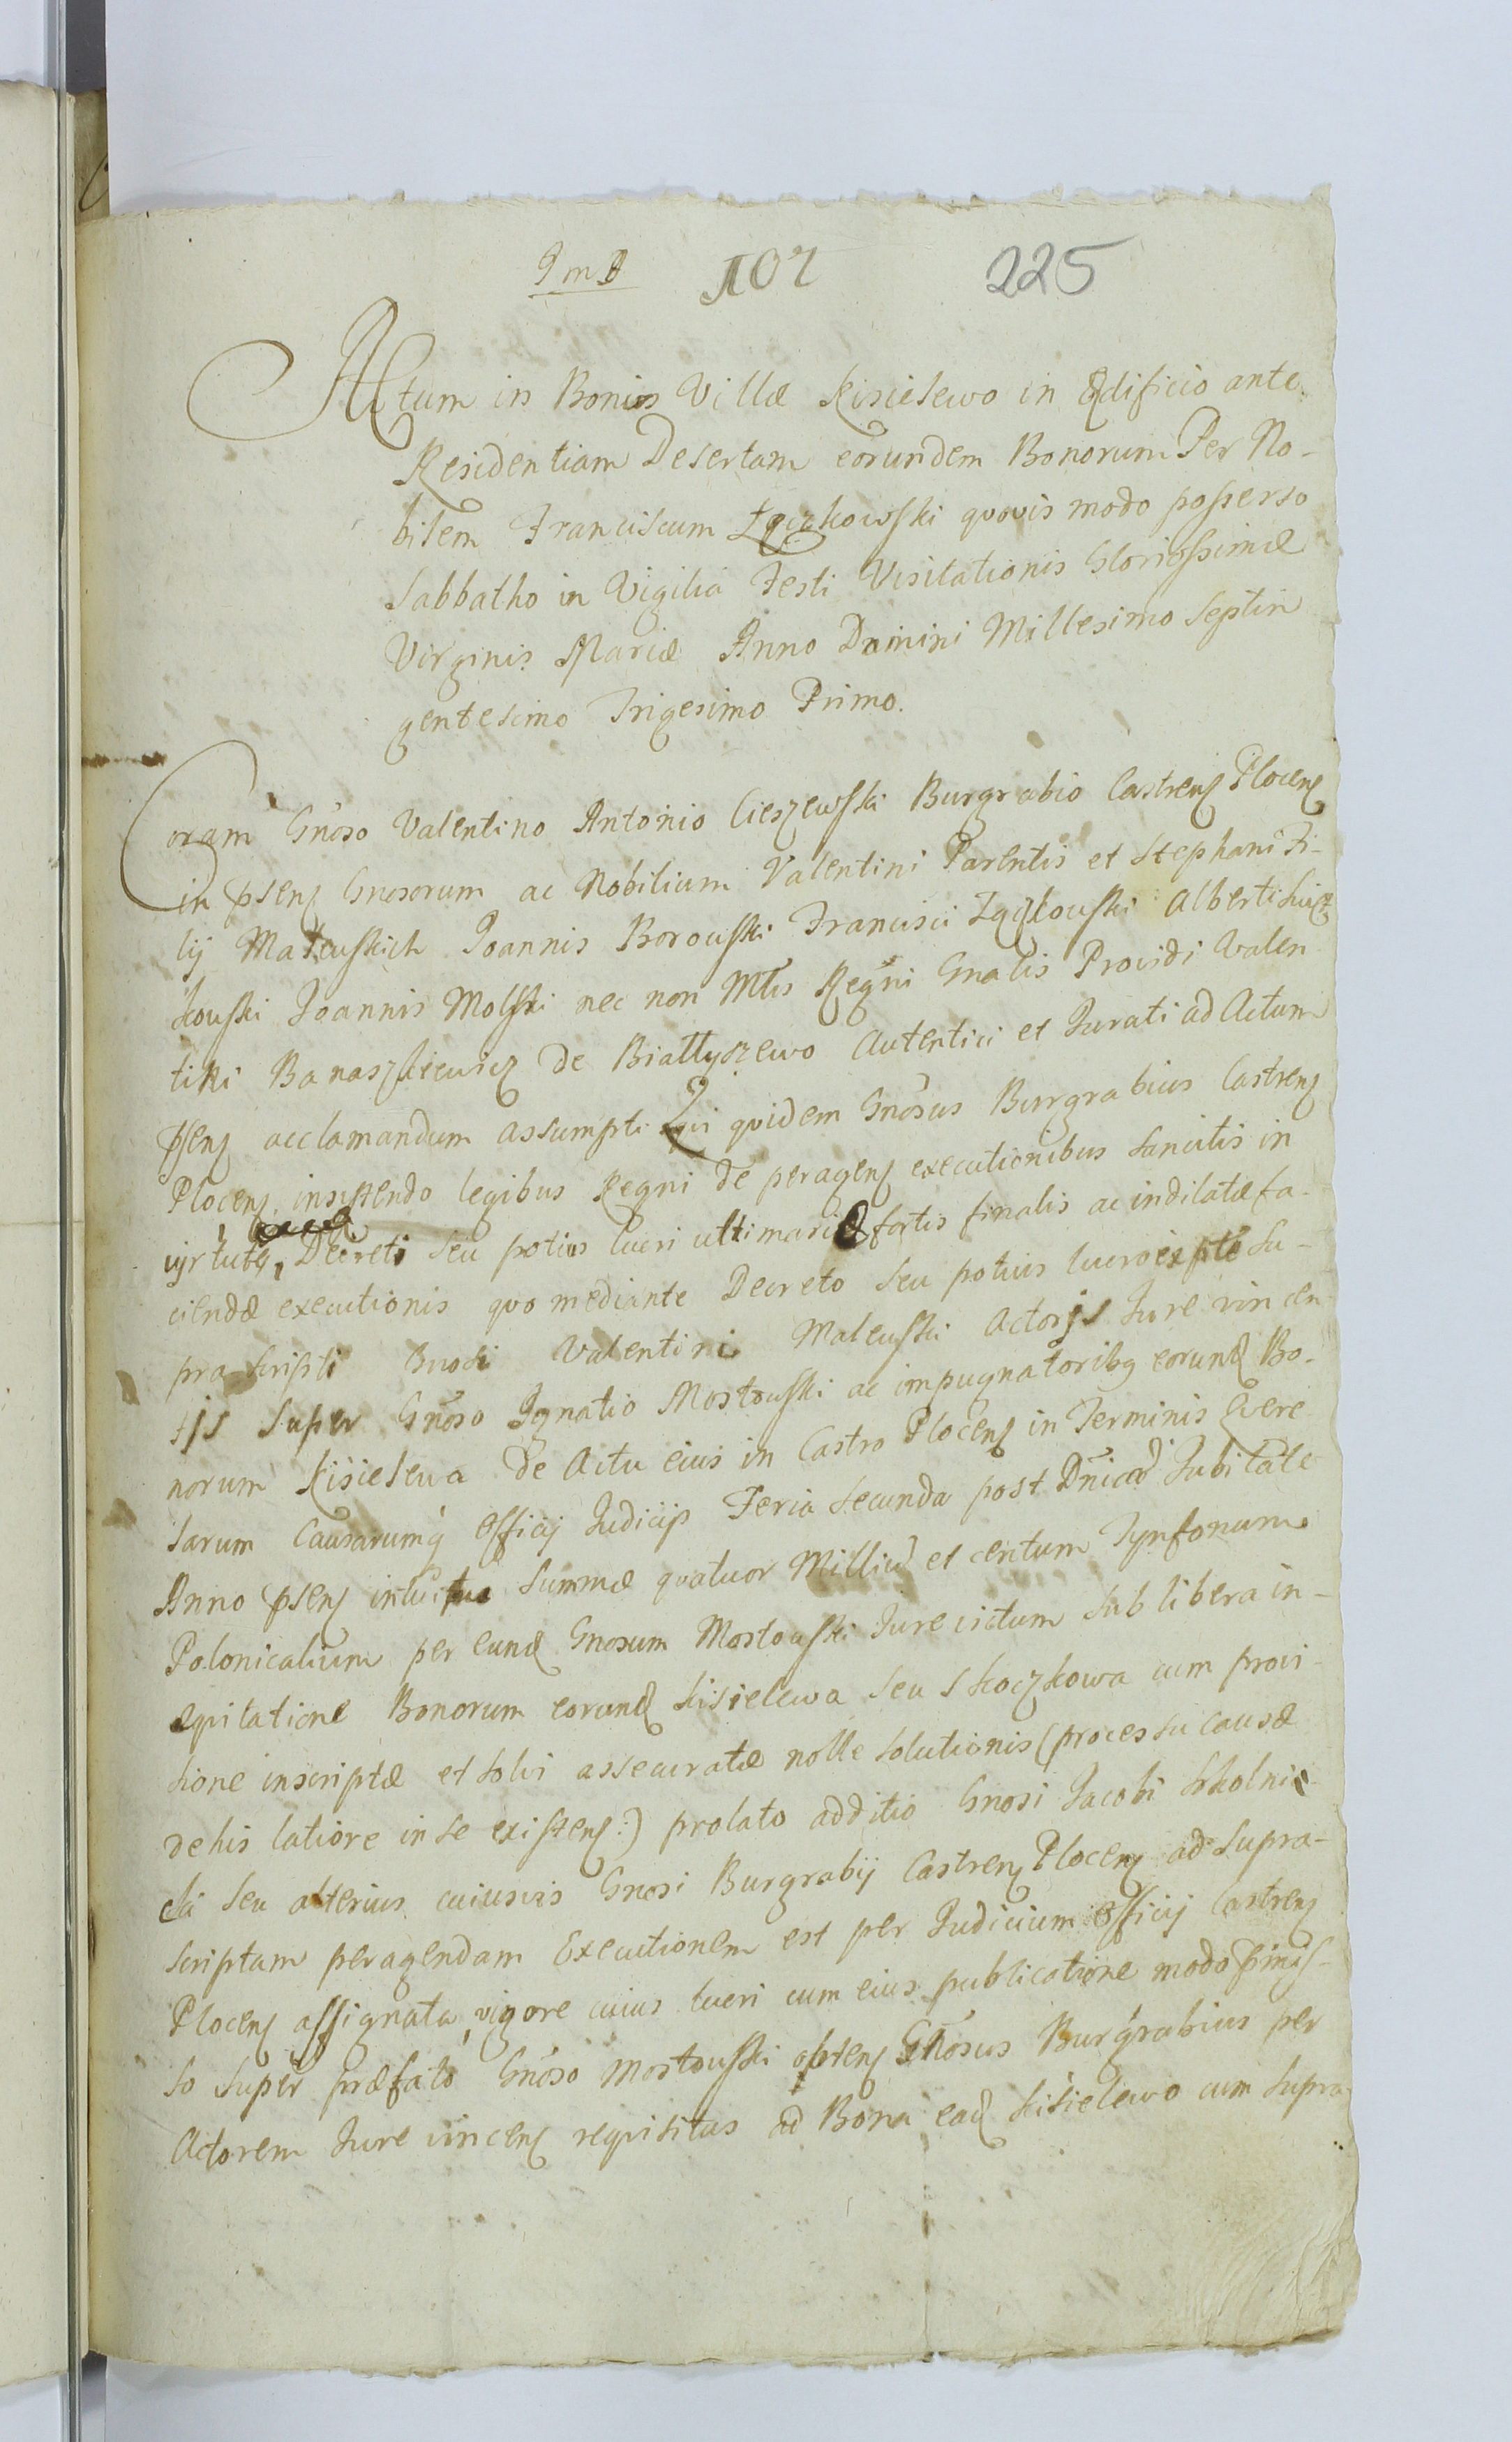 107 225
Actum in Bonis Villæ Kisielewo in Ædificio ante
Residentiam Desertam eorundem Bonorum Per No-
bilem Franciscum Łączkowski quovis modo possesso
Sabbatho in Vigilia Festi Visitationis Gloriossimæ
Virginis Mariæ Anno Domini Millesimo Septin
gentesimo Trigesimo Primo.
Coram Gnoso Valentino Antonio Cieszewski Burgrabio Castrens Plocens
in psens Gnosorum ac Nobilium Valentini Parentis et Stephani Fi-
lij Malewskich Joannis Borowski Francisci Łączkowski Alberti
kowski Joannis Molski nec non Mtris Regni Gnalis Providi Valen
tini Banaszkiewicz de Białłyszewo Autentici et Jurati ad Actum
psens acclamandum assumpti Qui quidem Gnosus Burgrabius Castrens
Plocens insistendo legibus Regni de peragens executionibus sancitis in
virtute Decreti seu potius lucri ultimariæ fortis finalis ac indilatæ fa-
ciendæ executionis quo mediante Decreto seu potius lucro ex pte su-
prascripti Gnosi Valentini Malewski Actoris Jure vincen
tis super Gnoso Ignatio Mostowski ac impugnatoribq eorund Bo-
norum Kisielewa de Actu eius in Castro Plocens in Terminis Quere
larum Causarumq Officij Judicijs Feria Secunda post Dnicam Jubilate
Anno psens intuitu Summæ quatuor Milliu et centum Tynfonum
Polonicalium per eund Gnosum Mostowski Jure victum sub libera in-
equitatione Bonorum eorund Kisielewa seu Skoczkowa cum provi-
sione inscriptæ et solvi assecuratæ nolle solutionis (processu causæ
de his latiore in se existens:) prolato additio Gnosi Jacobi Szkolnic-
ki seu alterius cuiusvis Gnosi Burgrabij Castrens Plocens ad supra-
scriptam peragendam Executionem est per Judicium Officij Castrens
Plocens assignata, vigore cuius lucri cum eius publicatione modo pmis-
so super præfato Gnoso Mostowski obtens Gnosus Burgrabius per
Actorem Jure vincens requisitus ad Bona ead Kisielewo cum supra